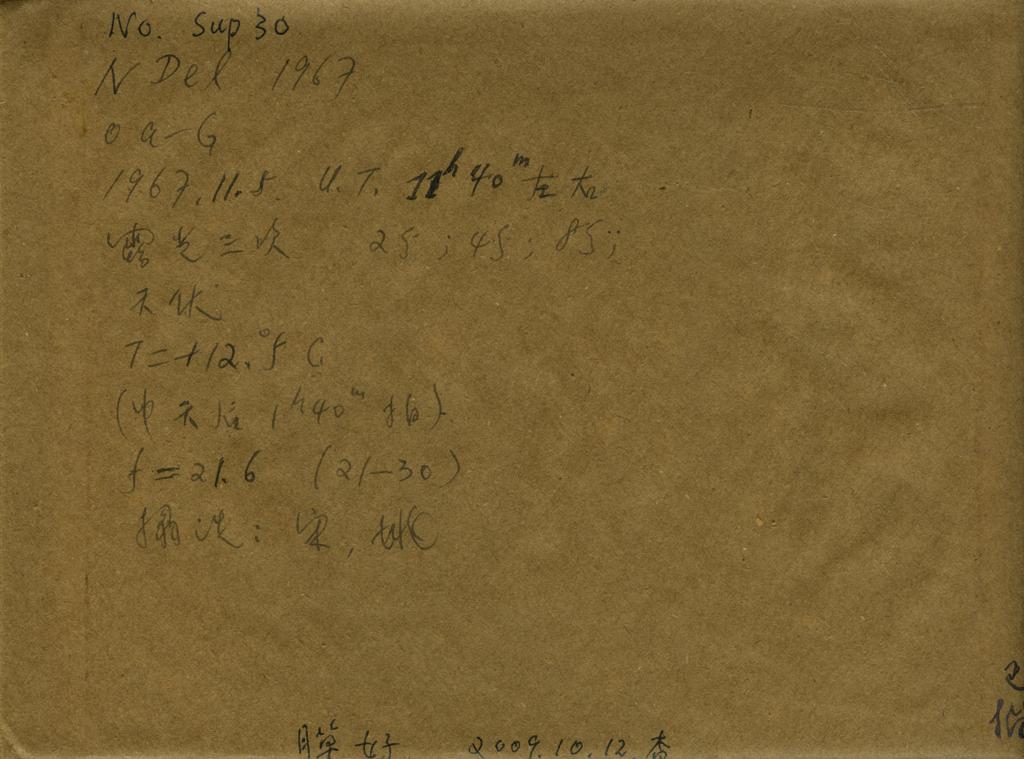 No. Sup 30
N Del 1967
o a-G
1967.11.5. U.T. 11ʰ40ᵐ左右
露光三次 2S; 4S; 8S;
T=+12.°5 C
(中天后 1ʰ40ᵐ拍)
f=21.6 (21-30)
摄洗: 宋, 姚
膜好 2009.10.12.
已